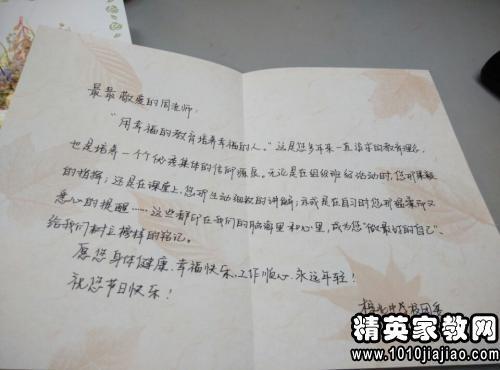 最最敬爱的周老师:
"用幸福的教育培养幸福的人。"这是您多年来一直追求的教育理念,
也是培养一个个优秀集体的信仰源泉。无论是在组织班给活动时,您那
的指挥;还是在课堂上,您那生动细致的讲解;亦或是在自习时您那
的提醒……这些都印在我们的脑海里和心里,成为您"做最好的自己"、
给我们树立榜样的铭记。
愿您身体健康、幸福快乐、工作顺心、永远年轻!
祝您节日快乐!
精英家教网
www.1010jiajiao.com